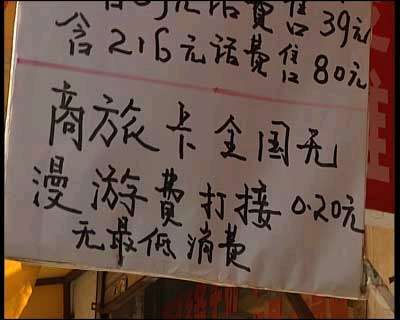 元话费售39元
含216元话费售80元
商旅卡全国无
漫游费打接0.20元
无最低消费